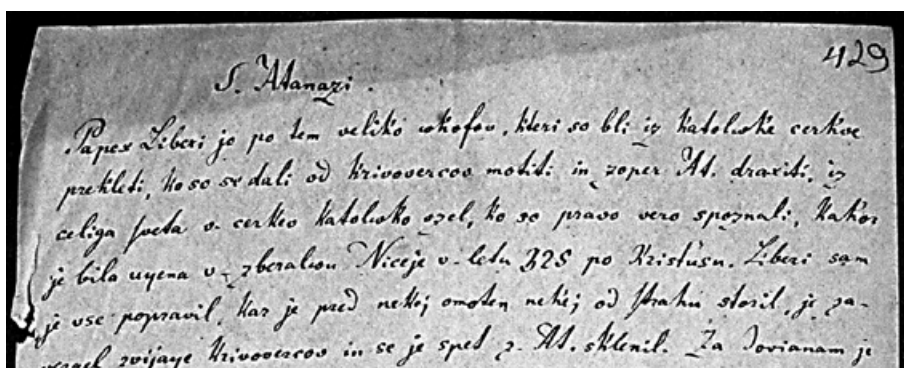 429
S. Atanazi.
Papex Liberi je po tem veliko ukofov, kteri so bli iz katoluke cerkve
prekleti, ko so se dali od krivovercov motiti in zoper At. draxiti, iz
celiga sveta v cerkev katoluko vzel, ko so pravo vero spoznali, kakor
je bila uyena v zberaliuu Niceje v letu 325 po Kristusu. Liberi sam
je vse popravil, kar je pred nekoj omoten nekej od strahu storil, je za-
zvijaye krivovercov in se je spet z At. sklenil. Za Joviana je